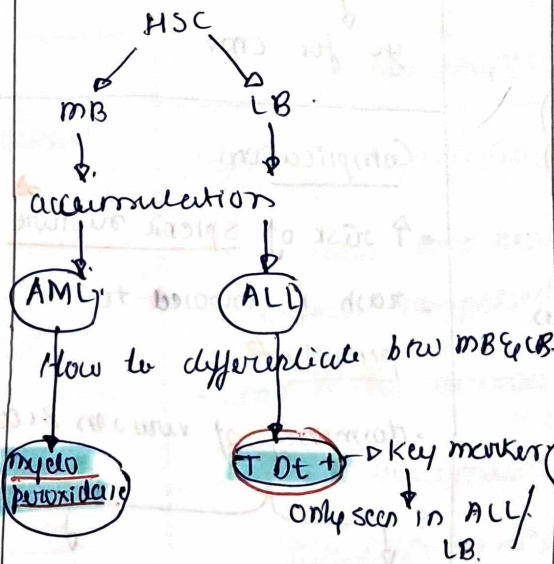 HSC
MB LB.
accumulation
AML ALL
How to differentiate b/w MB & LB.
myelo
peroxidase
TDt + → Key marker
only seen in ALL/
LB.